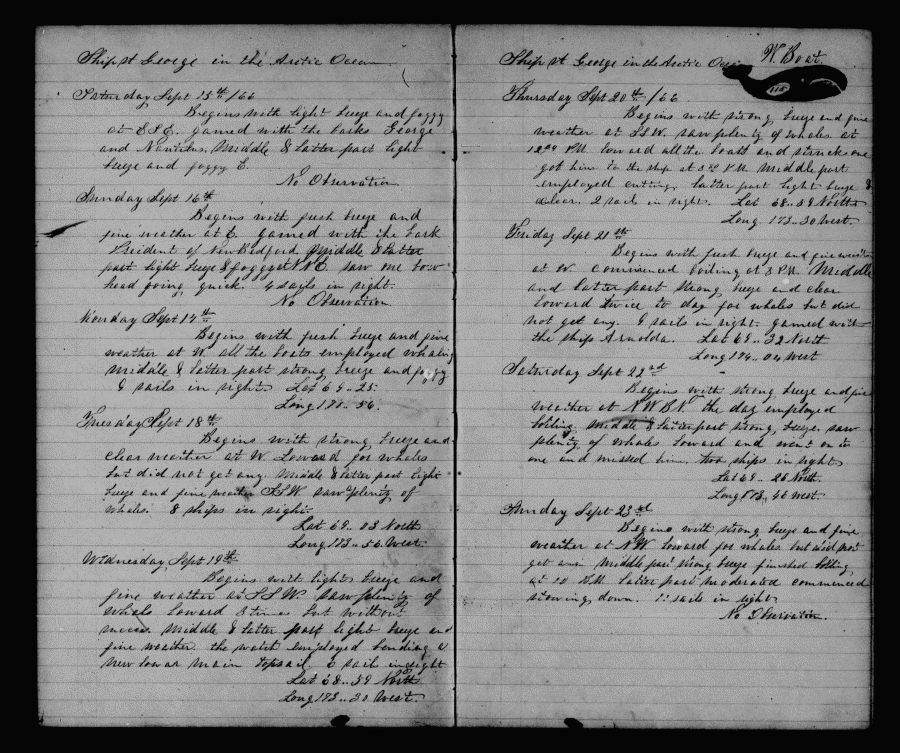 Ship St George in the Arctic Ocean
Saturday Sept 15th/66
Begins with light breeze and foggy
at E.S.E. gamed with the barks George
and Nautilus, Middle & latter part light
breeze and foggy E.
No Observation
Sunday Sept 16th
Begins with fresh breeze and
fine weather at E. gamed with the bark
President of New Bedford, Middle & latter
part light breeze & foggy at N.E. saw one bow
head going quick. 4 sails in sight.
No Observation
Monday Sept 17th
Begins with fresh breeze and fine
weather at W. all the boats employed whaling
middle & latter part strong breeze and foggy
8 sails in sight. Lat 69..25.
Long 171..56.
Tuesday Sept 18th
Begins with strong breeze and
clear weather at W. Lowered for whales
but did not get any. Middle & latter part light
breeze and fine weather S.S.W. saw plenty of
whales. 8 ships in sight.
Lat 69..03 North
Long 173..56 West.
Wednesday, Sept 19th
Begins with light breeze and
fine weather at S.S.W. saw plenty of
whales loward 3 times but without
Middle & latter part light breeze and
fine weather. the watch employed bending a
new lowar main topsail. 6 sail in sight
Lat 68..59 North
Long 173..30 West.
Ship St George in the Arctic Ocean W. Boat.
Thursday Sept 20th/66
Begins with strong breeze and fine
weather at S.S.W. saw plenty of whales at
PM loward all the boats and struck one
got him to the ship at 3 PM Middle part
employed cutting, latter part light breeze &
clear. 2 sails in sight. Lat 68..59 North
Long 173..30 West.
Friday Sept 21st
Begins with fresh breeze and fine weather
at W. commenced boiling at 3 P.M. Middle
and latter part strong breeze and clear
loward twice to day for whales but did
not get any. 6 sails in sight. gamed with
the ship Arnolda. Lat 69..32 North
Long 174..04 West
Saturday Sept 22nd
Begins with strong breeze and fine
weather at N.W.B.N. the day employed
boiling middle & latter part strong breeze. saw
plenty of whales loward and went on to
one and missed him, two ships in sight,
Lat 69..28 North.
Long 173..46 West.
Sunday Sept 23rd
Begins with strong breeze and fine
weather at N.W. loward for whales but did not
get any. middle part strong breeze finished boiling,
at 10 latter part moderated commenced
stowing down. 11 sails in sight.
No Observation.